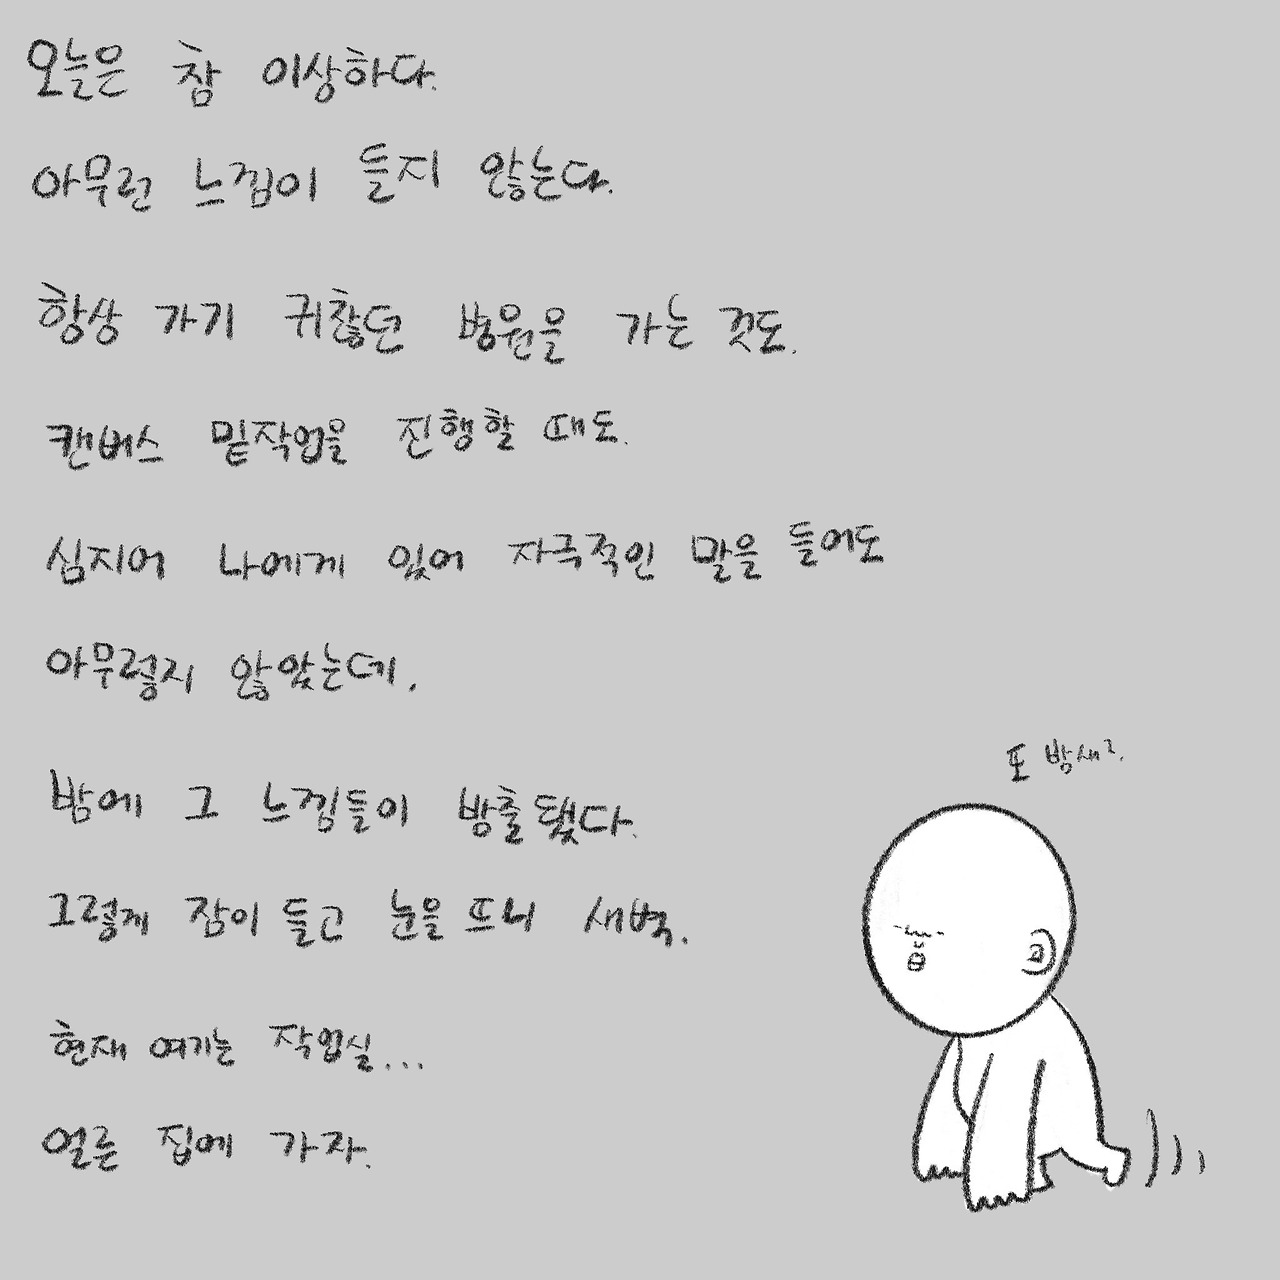 오늘은 참 이상하다.
아무런 느낌이 들지 않는다.
항상 가기 귀찮던 병원을 가는 것도.
캔버스 밑작업을 진행할 때도.
심지어 나에게 있어 자극적인 말을 들어도
아무렇지 않았는데.
밤에 그 느낌들이 방출됐다.
그렇게 잠이 들고 눈을 뜨니 새벽.
현재 여기는 작업실...
얼른 집에 가자.
또 밤새?.